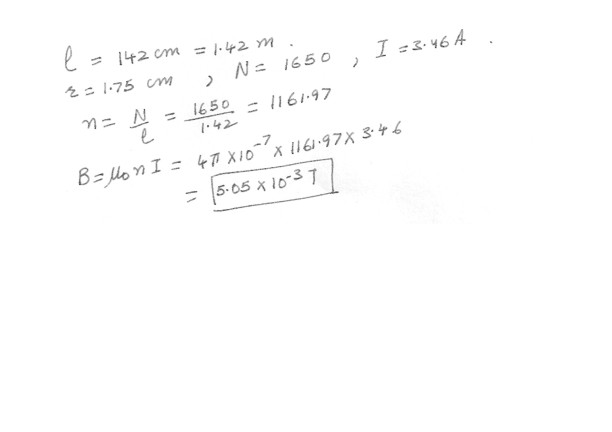 l = 142 cm = 1.42 m .
r = 1.75 cm , N = 1650 , I = 3.46 A .
n = N/l = 1650/1.42 = 1161.97
B = μ₀ n I = 4π × 10⁻⁷ × 1161.97 × 3.46
= 5.05 × 10⁻³ T